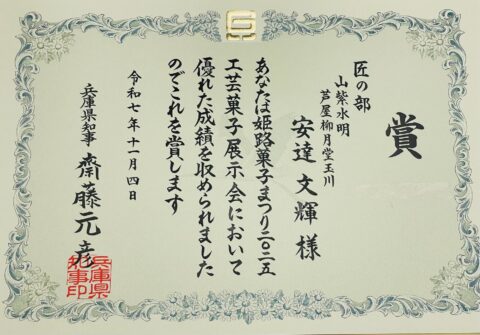 賞
匠の部
山紫水明
芦屋柳月堂玉川
安達文輝様
あなたは姫路菓子まつり二〇二五
工芸菓子展示会において
優れた成績を収められました
のでこれを賞します
令和七年十一月四日
兵庫県知事 齋藤元彦
兵庫県
知事印